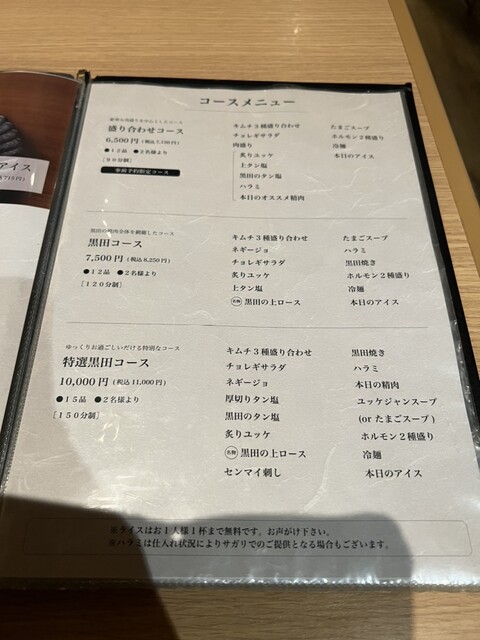 アイス
コースメニュー
盛り合わせコース
6,500円（税込7,150円）
●12品 ●2名様より
［90分制］
事前予約限定コース
キムチ3種盛り合わせ
チョレギサラダ
肉盛り
炙りユッケ
上タン塩
黒田のタン塩
ハラミ
本日のオススメ精肉
たまごスープ
ホルモン2種盛り
冷麺
本日のアイス
黒田の焼肉全体を網羅したコース
黒田コース
7,500円（税込8,250円）
●12品 ●2名様より
［120分制］
キムチ3種盛り合わせ
ネギージョ
チョレギサラダ
炙りユッケ
上タン塩
名物 黒田の上ロース
たまごスープ
ハラミ
黒田焼き
ホルモン2種盛り
冷麺
本日のアイス
ゆっくりお過ごしいだける特別なコース
特選黒田コース
10,000円（税込11,000円）
●15品 ●2名様より
［150分制］
キムチ3種盛り合わせ
チョレギサラダ
ネギージョ
厚切りタン塩
黒田のタン塩
炙りユッケ
名物 黒田の上ロース
センマイ刺し
黒田焼き
ハラミ
本日の精肉
ユッケジャンスープ
(or たまごスープ)
ホルモン2種盛り
冷麺
本日のアイス
※ライスはお1人様1杯まで無料です。お声がけ下さい。
※ハラミは仕入れ状況によりサガリでのご提供となる場合もございます。